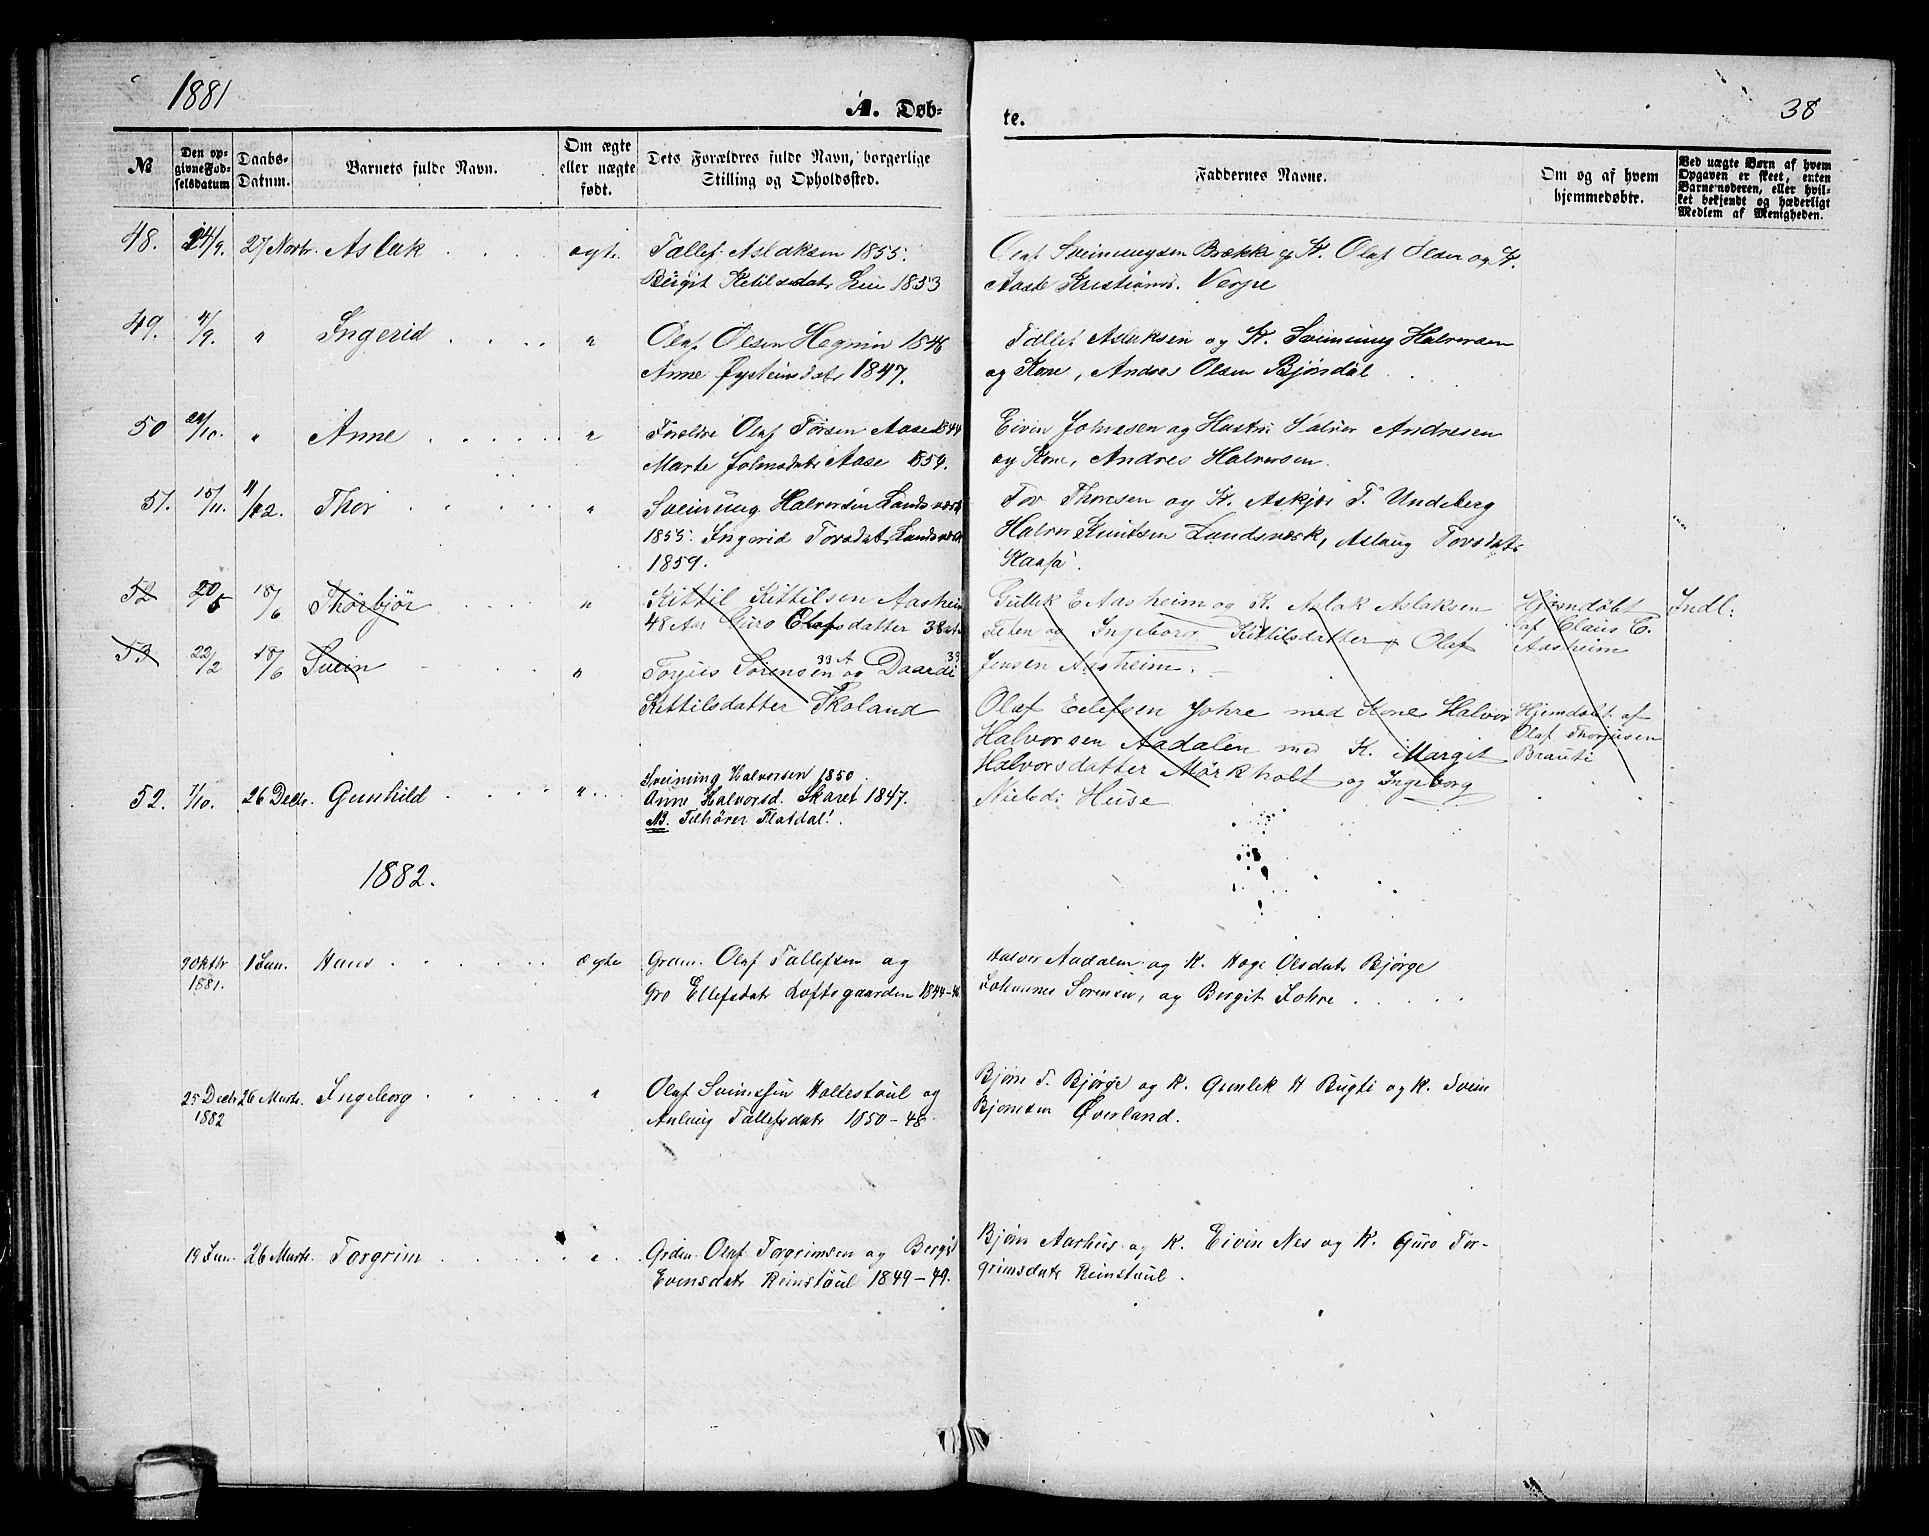 1881
A. Døb-
te.
38
№
Den op-
givne Fød-
selsdatum
Daabs-
Datum.
Barnets fulde Navn.
Om ægte
eller uægte
født.
Dets Forældres fulde Navn, borgerlige
Stilling og Opholdssted.
Faddernes Navne.
Om og af hvem
hjemmedøbte.
Ved uægte Børn af hvem
Opgaven er skeet, enten
Barnemoderen, eller hvil-
ket bekjendt og hæderligt
Medlem af Menigheden.
48. 24/9. 27 Novbr. Aslak ægte Tallef Aslaksen 1855.
Bergit Ketilsdatr 1853
Olaf Sveinungsen Brække og K. Olaf Olsen og K.
Aaste Kristians. Verpe
49. 4/9. " Ingerid " Olaf Olsen Hegnin 1846
Anne Øysteinsdatr 1847.
Tallef Aslaksen og K. Sveinung Halvorsen
og Kone, Andres Olsen Bjøndal
50 29/10. " Anne " Foreldre Olaf Torsen Aase 1844
Marte Johnsdatr Aase 1859.
Eivin Johnsen og Hustru Halvor Andresen
og Kone, Andres Halvorsen.
51. 15/11. 11/12. Thor " Sveinung Halvorsen Landsværk
1855. Ingerid Torsdatr Landsværk
1859.
Tov Thoresen og K. Askjer T. Undeberg
Halvor Knutsen Landsværk, Aslaug Tovsdatr
Haasa.
52 20/5 18/6 Thorbjør " Kittil Kittilsen Aasheim
48 Aar Guro Olafsdatter 38 atr
Gullek E Aasheim og K. Aslak Aslaksen
Teken og Ingeborg Kittilsdatter & Olaf
Jensen Aasheim.
Hjemdøbt
af Claus C.
Aasheim
Indl:
53 22/2 18/6 Svein " Torjus Sørensen 33 A og Daardi 39
Kittilsdatter Skoland
Olaf Eilefsen Johre med Kone Halvor
Halvorsen Aadalen med K. Margit
Halvorsdatter Mørkholt og Ingeborg
Nielsd: Huse
Hjemdøbt af
Olaf Thorjusen
Brauti
52. 7/10. 26 Decbr. Gunhild " Sveinung Halvorsen 1850
Anne Halvorsd. Skaret 1847.
NB. Tilhører Flatdal!
1882.
9 Oktbr
1881. 1 Jan. Hans ægte Grdm. Olaf Tallefsen og
Gro Ellefsdatr Loftsgaarden 1844-46
Halvor Aadalen og K. Hoge Olsdatr Bjørge
Johannes Sørensen, og Bergit Johre
25 Decbr
1882 26 Marts. Ingeborg " Olaf Sveinssen Haltestaul og
Aslaug Tallefsdatr 1850-48
Bjørn T. Bjørge og K. Gunlek H Bugti og K. Svein
Bjørnsen Øverland.
19 Jan. 26 Marts. Torgrim " Grdm. Olaf Torgrimsen og Bergit
Evensdatr Reinstaul 1849-49.
Bjørn Aarhus og K. Eivin Nes og K. Guro Tor-
grimsdatr Reinstaul.